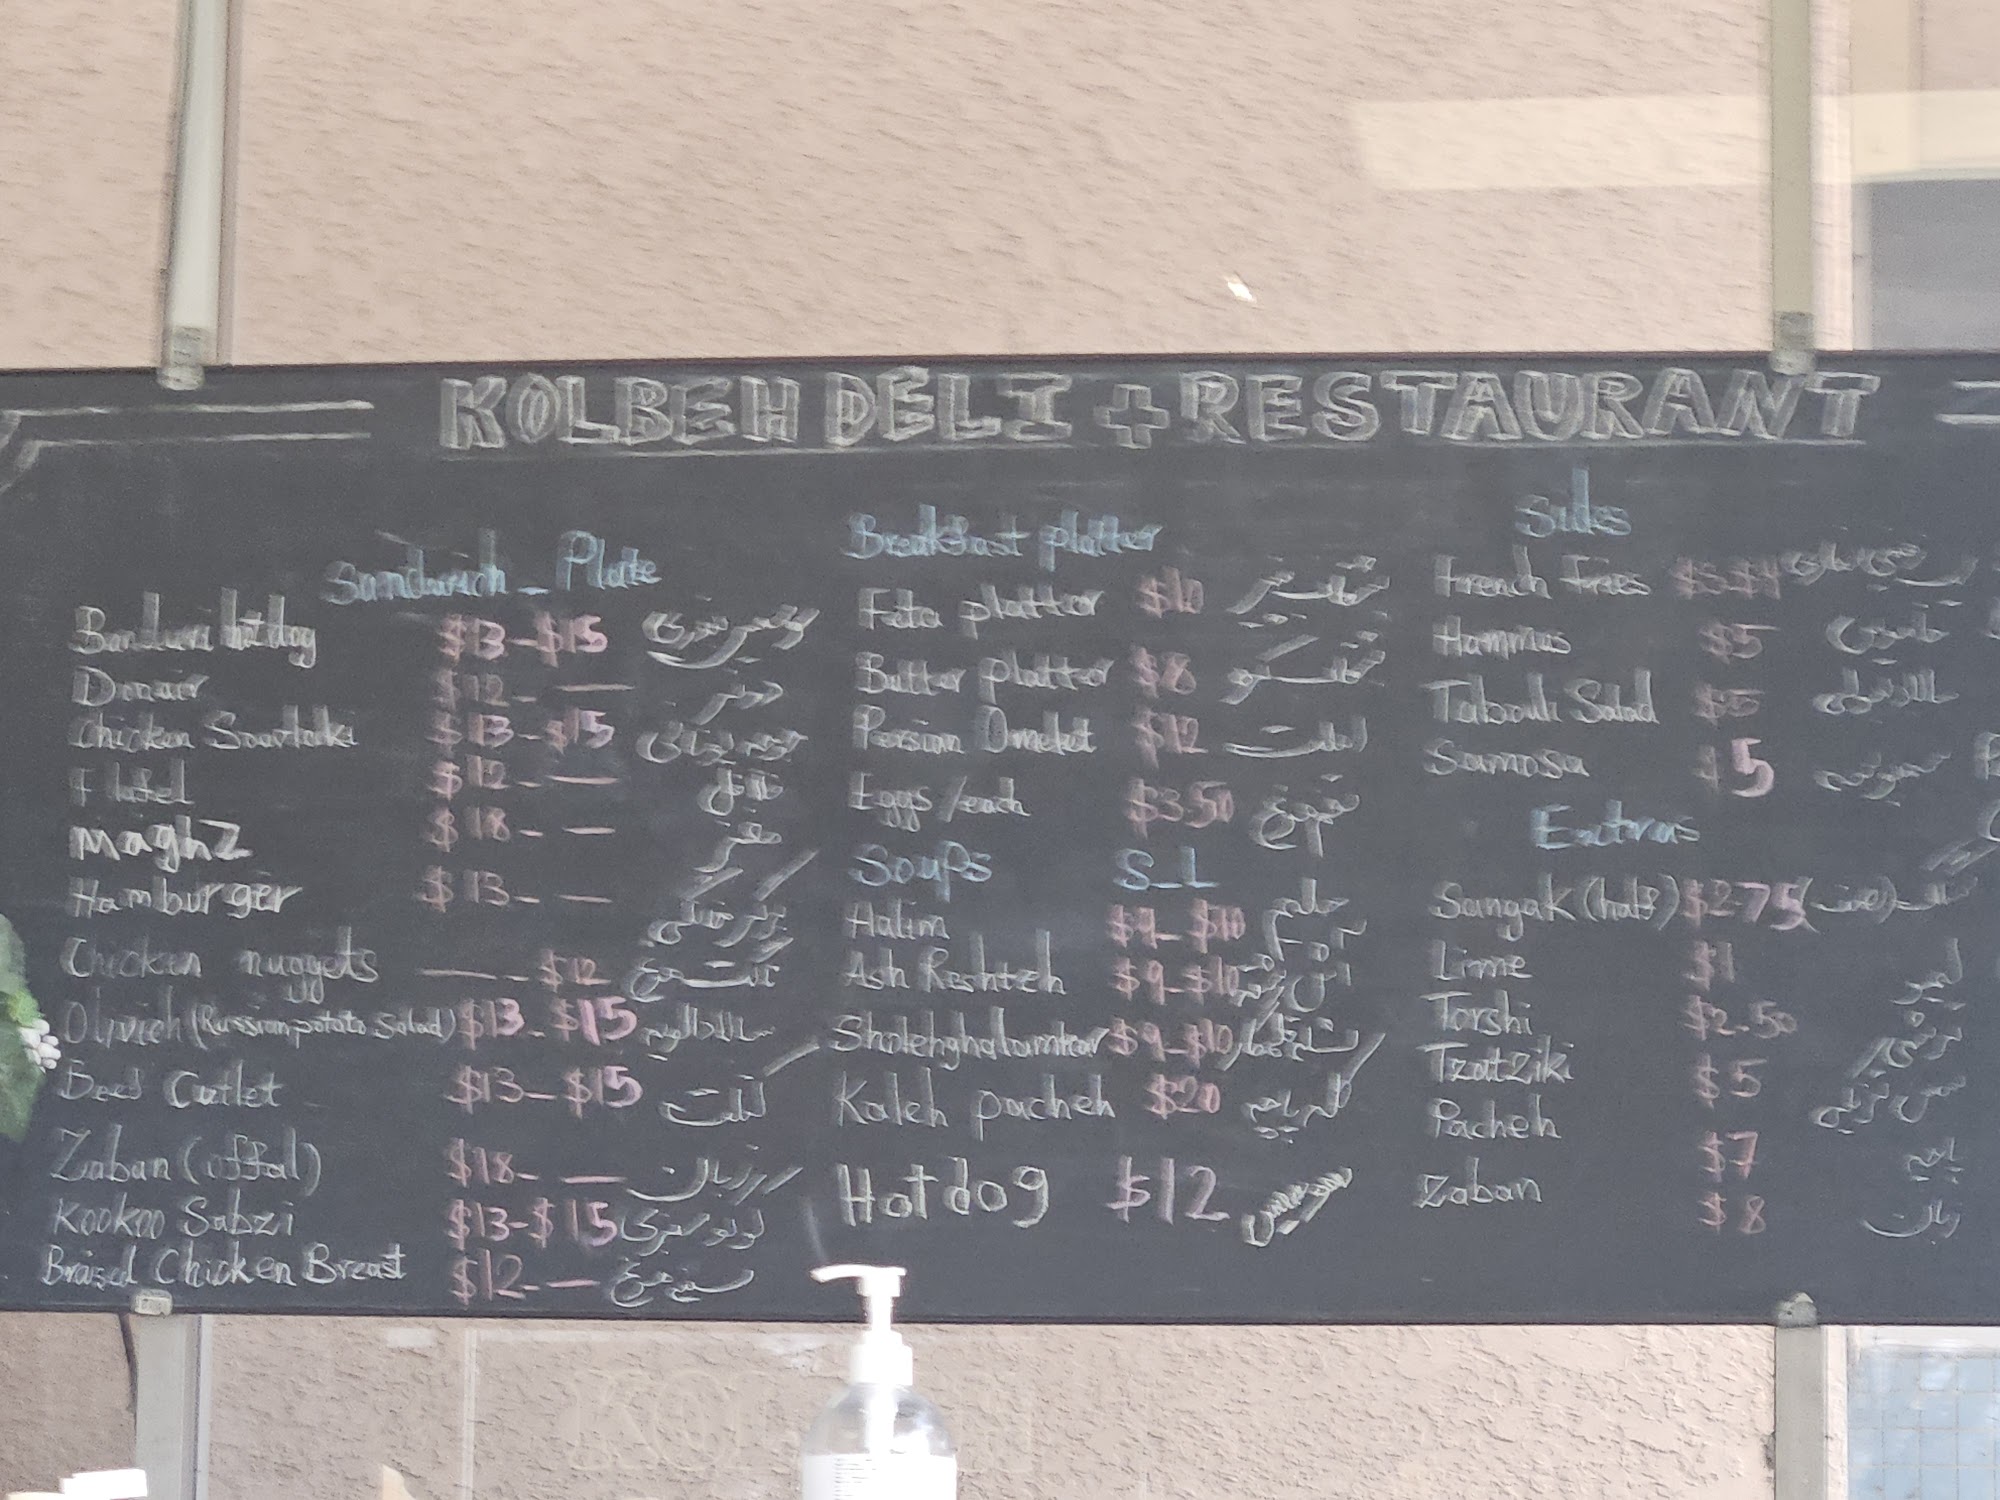 KOLBEH DELI + RESTAURANT
Sandwich - Plate
Bandari hotdog $13-$15
Donair $12- — دونر
Chicken Souvlaki $13-$15
Flafel $12- — فلافل
Maghz $18- — مغز
Hamburger $13- —
Chicken nuggets — -$12
Olivieh (Russian potato salad) $13-$15 سالاد الویه
Beef Cutlet $13-$15 کتلت
Zaban (offal) $18- — زبان
Kookoo Sabzi $13-$15 کوکو سبزی
Braised Chicken Breast $12- — سینه مرغ
Breakfast platter
Feta platter $10
Butter platter $8
Persian Omelet $12 املت
Eggs /each $3.50 تخم مرغ
Soups S-L
Halim $9-$10 حلیم
Ash Reshteh $9-$10 آش رشته
Sholehghalamkar $9-$10
Kaleh pacheh $20 کله پاچه
Hot dog $12 سوسیس
Sides
French Frees
Hammus $5
Tabouli Salad $5
Samosa $5 سمبوسه
Extras
Sangak (half) $2.75
Lime $1 لیمو
Torshi $2.50 ترشی
Tzatziki $5
Pacheh $7 پاچه
Zaban $8 زبان